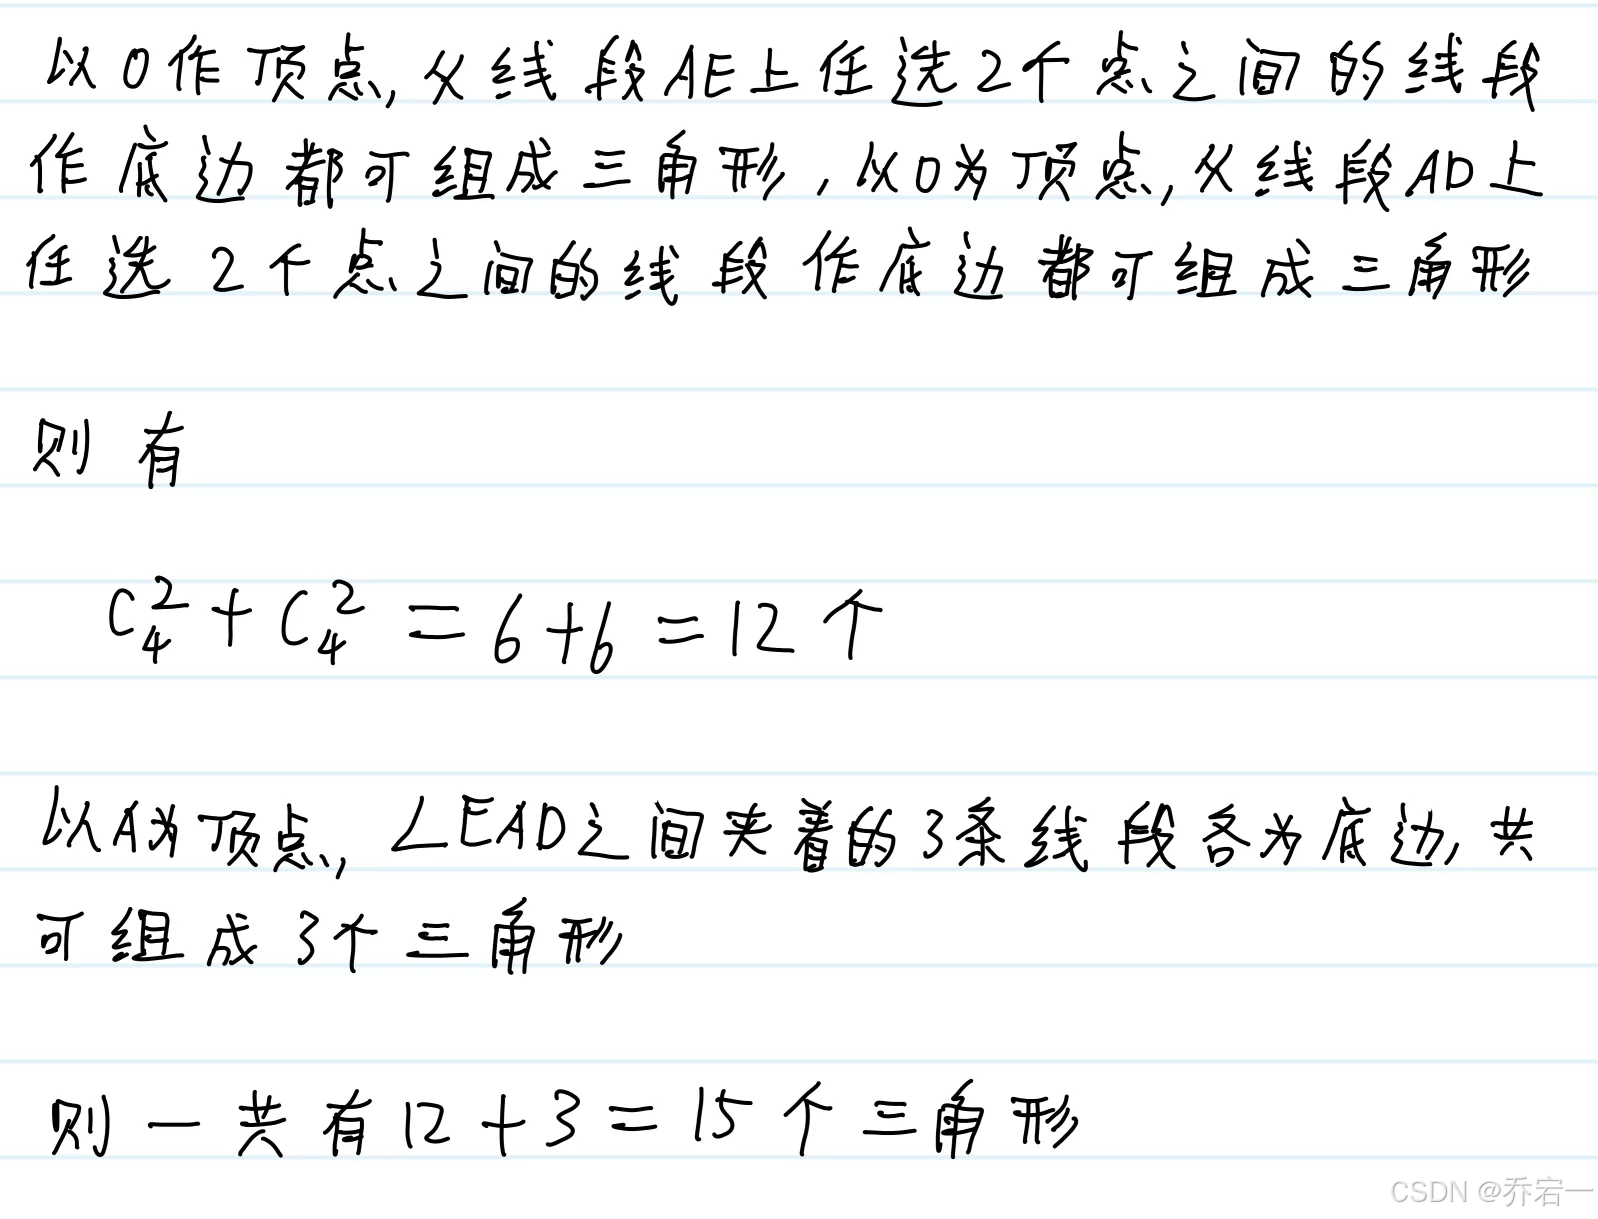 以O作顶点,父线段AE上任选2个点之间的线段
作底边都可组成三角形,以O为顶点,父线段AD上
任选2个点之间的线段作底边都可组成三角形
则有
C₄² + C₄² = 6+6 = 12个
以A为顶点,∠EAD之间夹着的3条线段各为底边,共
可组成3个三角形
则一共有12+3=15个三角形
CSDN @乔宕一